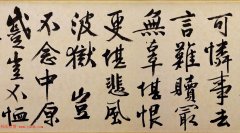 可憐事去
言難贖㝡
無辜堪恨
更堪悲風
波獄豈
不念中原
蹙豈不恤